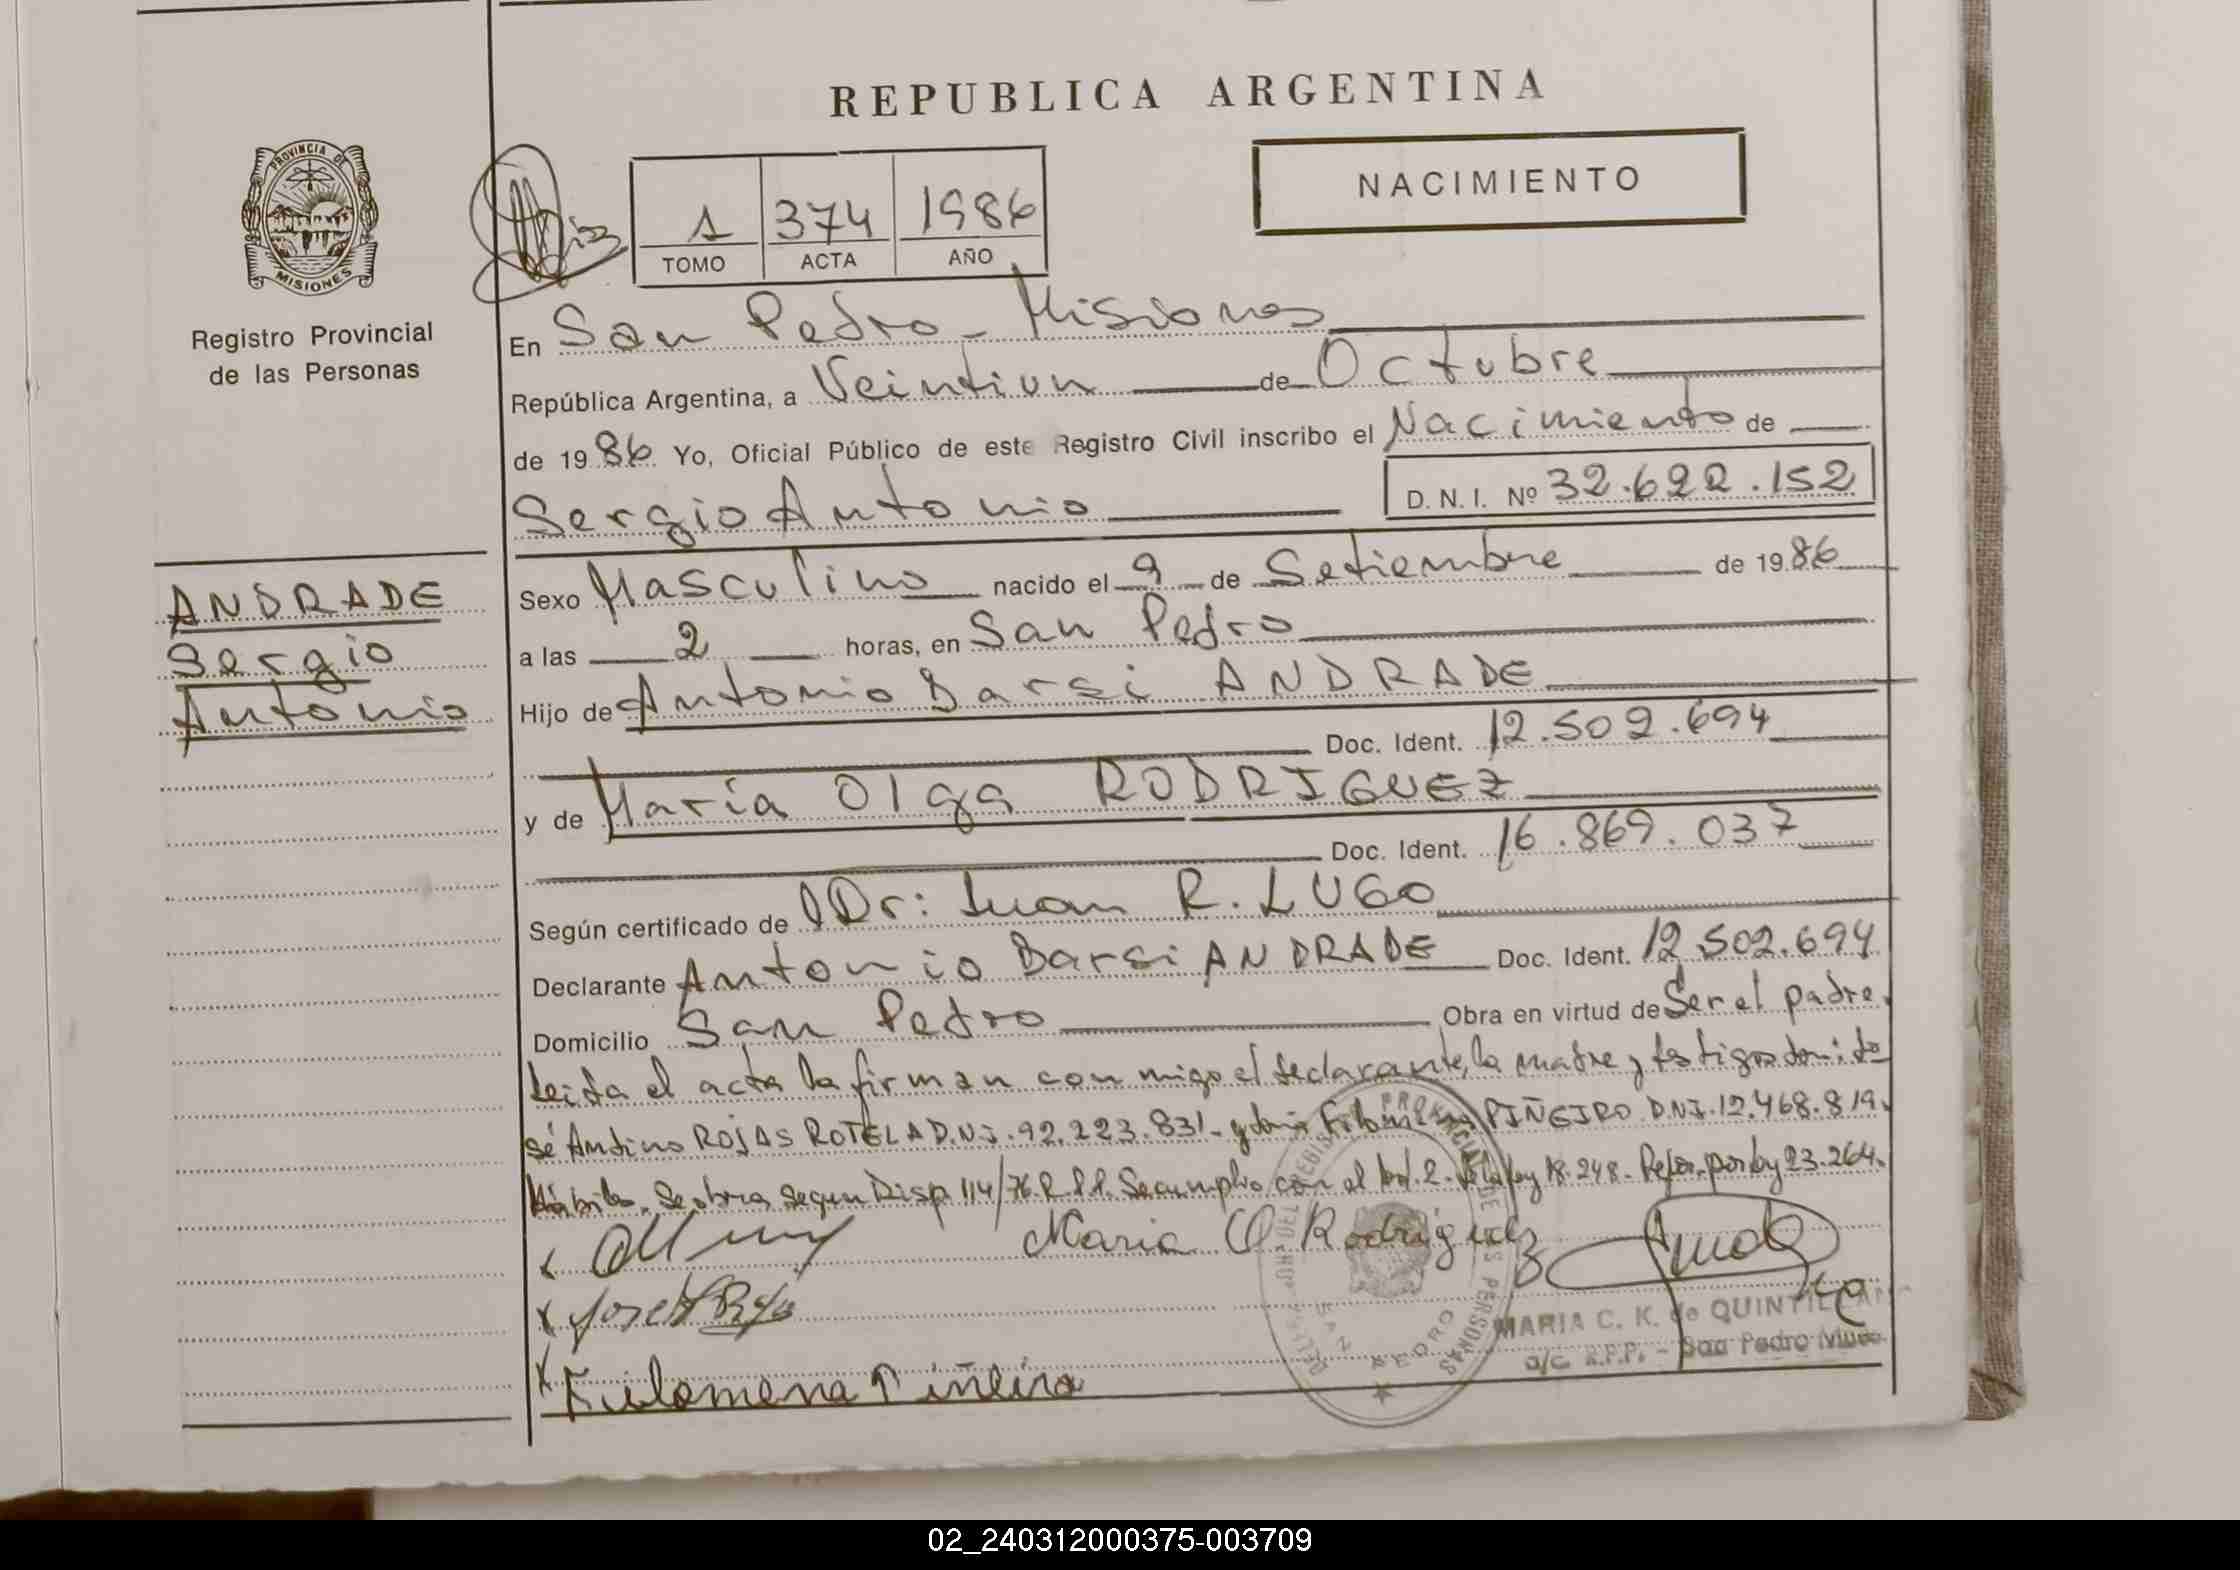 REPUBLICA ARGENTINA
NACIMIENTO
PROVINCIA DE
MISIONES
Registro Provincial
de las Personas
1 374 1986
TOMO ACTA AÑO
En San Pedro - Misiones
República Argentina, a Veintiun de Octubre
de 1986 Yo, Oficial Público de este Registro Civil inscribo el Nacimiento de
Sergio Antonio D.N.I. Nº 32.622.152
ANDRADE
Sergio
Antonio
Sexo Masculino nacido el 9 de Setiembre de 1986
a las 2 horas, en San Pedro
Hijo de Antonio Darsi ANDRADE
Doc. Ident. 12.502.694
y de María Olga RODRIGUEZ
Doc. Ident. 16.869.037
Según certificado de Dr: Juan R. LUGO
Declarante Antonio Darsi ANDRADE Doc. Ident. 12.502.694
Domicilio San Pedro Obra en virtud de Ser el padre.
Leida el acta la firman con migo el declarante, la madre y testigos
sé Andino ROJAS ROTELA D.N.I. 92.223.831 - y PIÑEIRO D.N.I. 12.468.819.
Se obra segun Disp. 114/76 R.P.P. Se cumplio con el 2 - ley 18.248 - por ley 23.264.
Maria O Rodriguez
Jose A Rojas
MARIA C. K. de QUINTILLAN
a/c R.P.P. - San Pedro Mnes.
Filomena Piñeiro
02_240312000375-003709